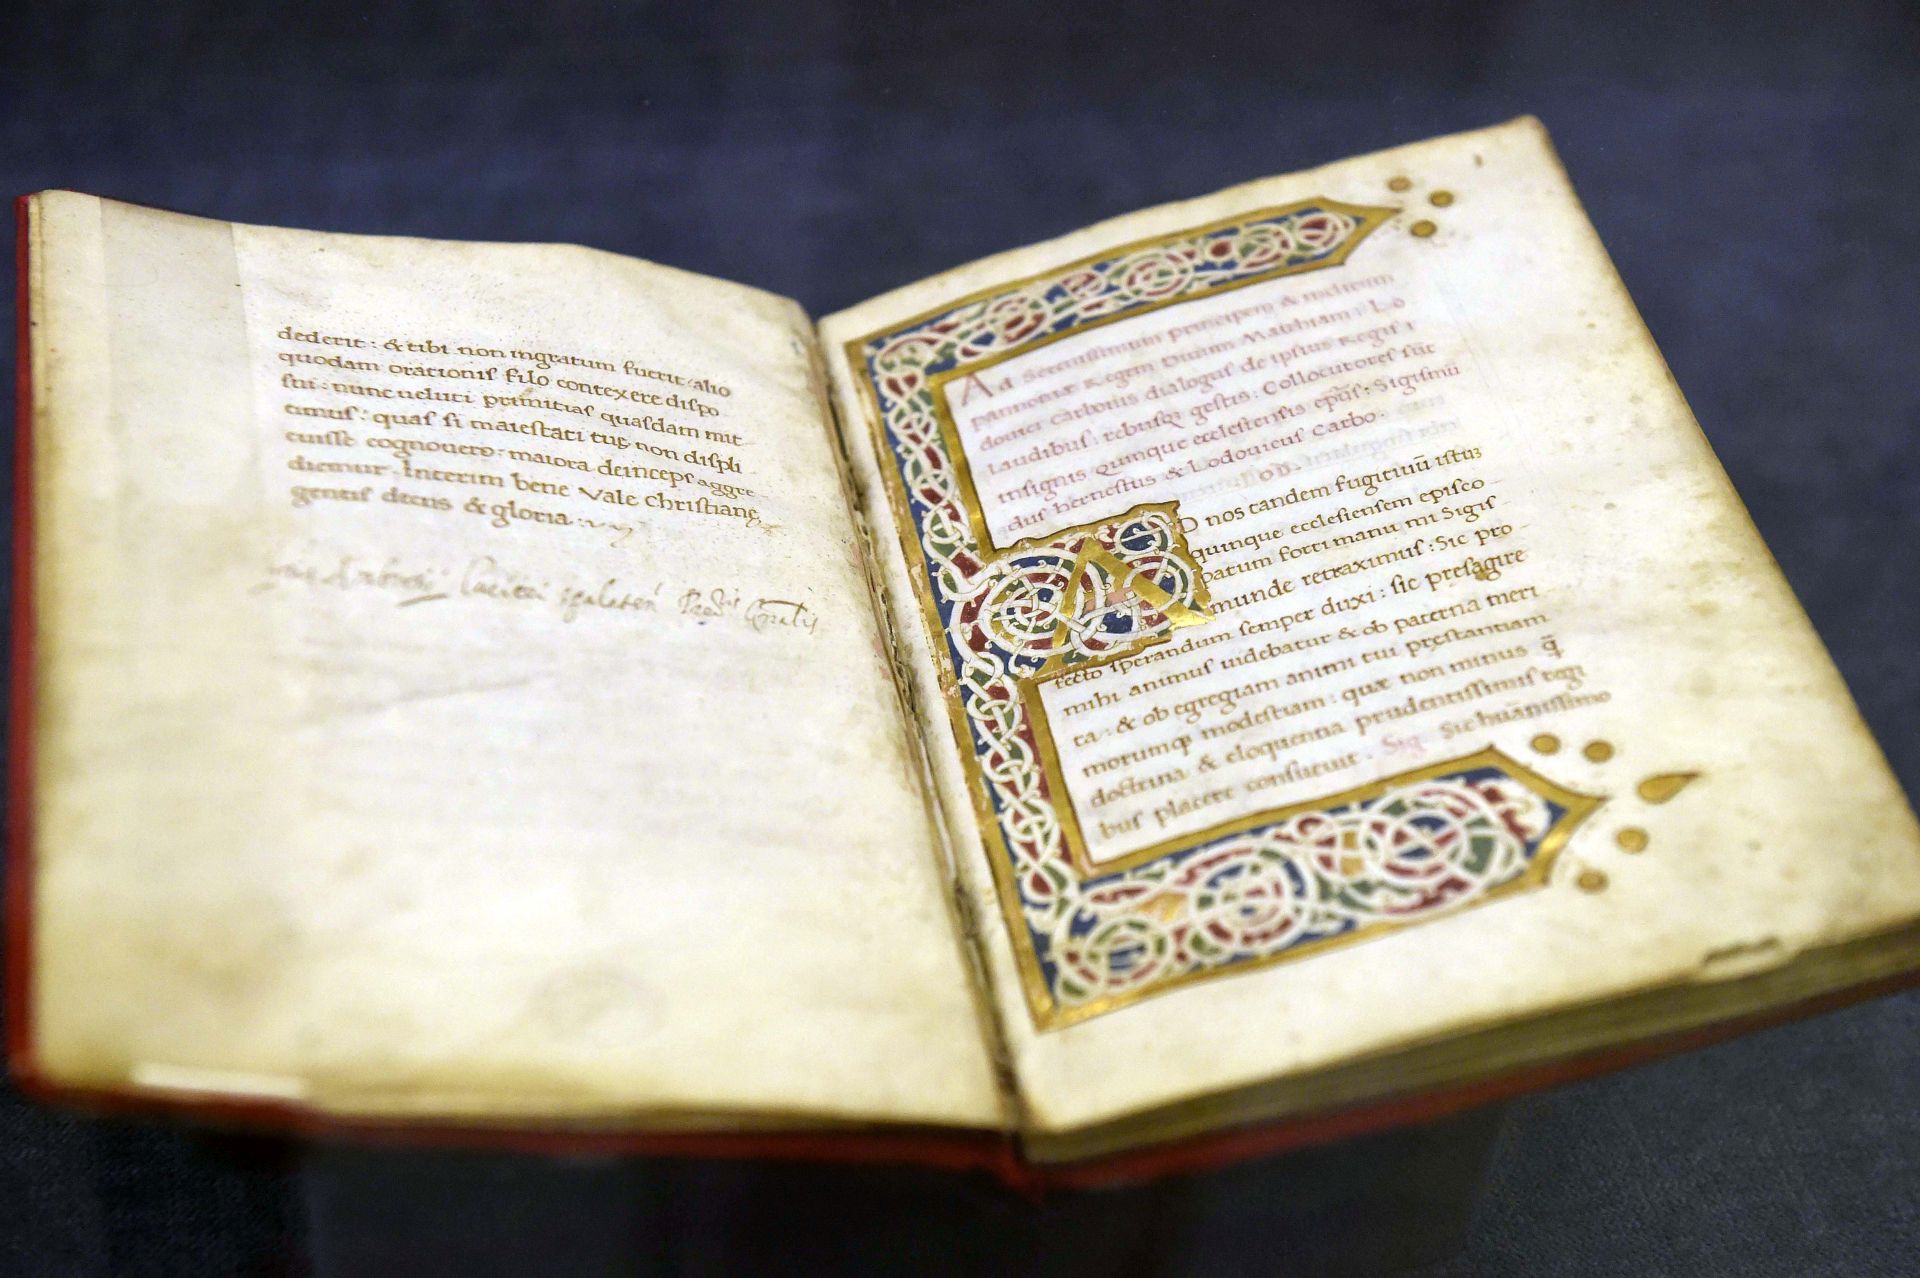 dederit: & tibi non ingratum fuerit: alio
quodam orationis filo contexere dispo
sui: nunc ueluti primitias quasdam mit
timus: quas si maiestati tuę non displi
cuisse cognouero: maiora deinceps aggre
diemur. Interim bene Vale Christianę
gentis decus & gloria:
Ad Serenissimum principem & inclitum
pannoniæ Regem Diuum Mathiam: Lo
douici carbonis dialogus de ipsius Regis
laudibus: rebusq gestis: Collocutores sūt
insignis quinque ecclesiensis epūs: Sigismū
dus hernestus & Lodouicus Carbo.
D nos tandem fugitiuū istuz
quinque ecclesiensem episco
patum forti manu mi Sigis
munde retraximus: Sic pro
fecto sperandum semper duxi: sic presagire
mihi animus uidebatur & ob paterna meri
ta: & ob egregiam animi tui prestantiam
morumq modestiam: quæ non minus q̄
doctrina & eloquentia prudentissimis regi
bus placere consueuit. Sig. Sic huānissimo